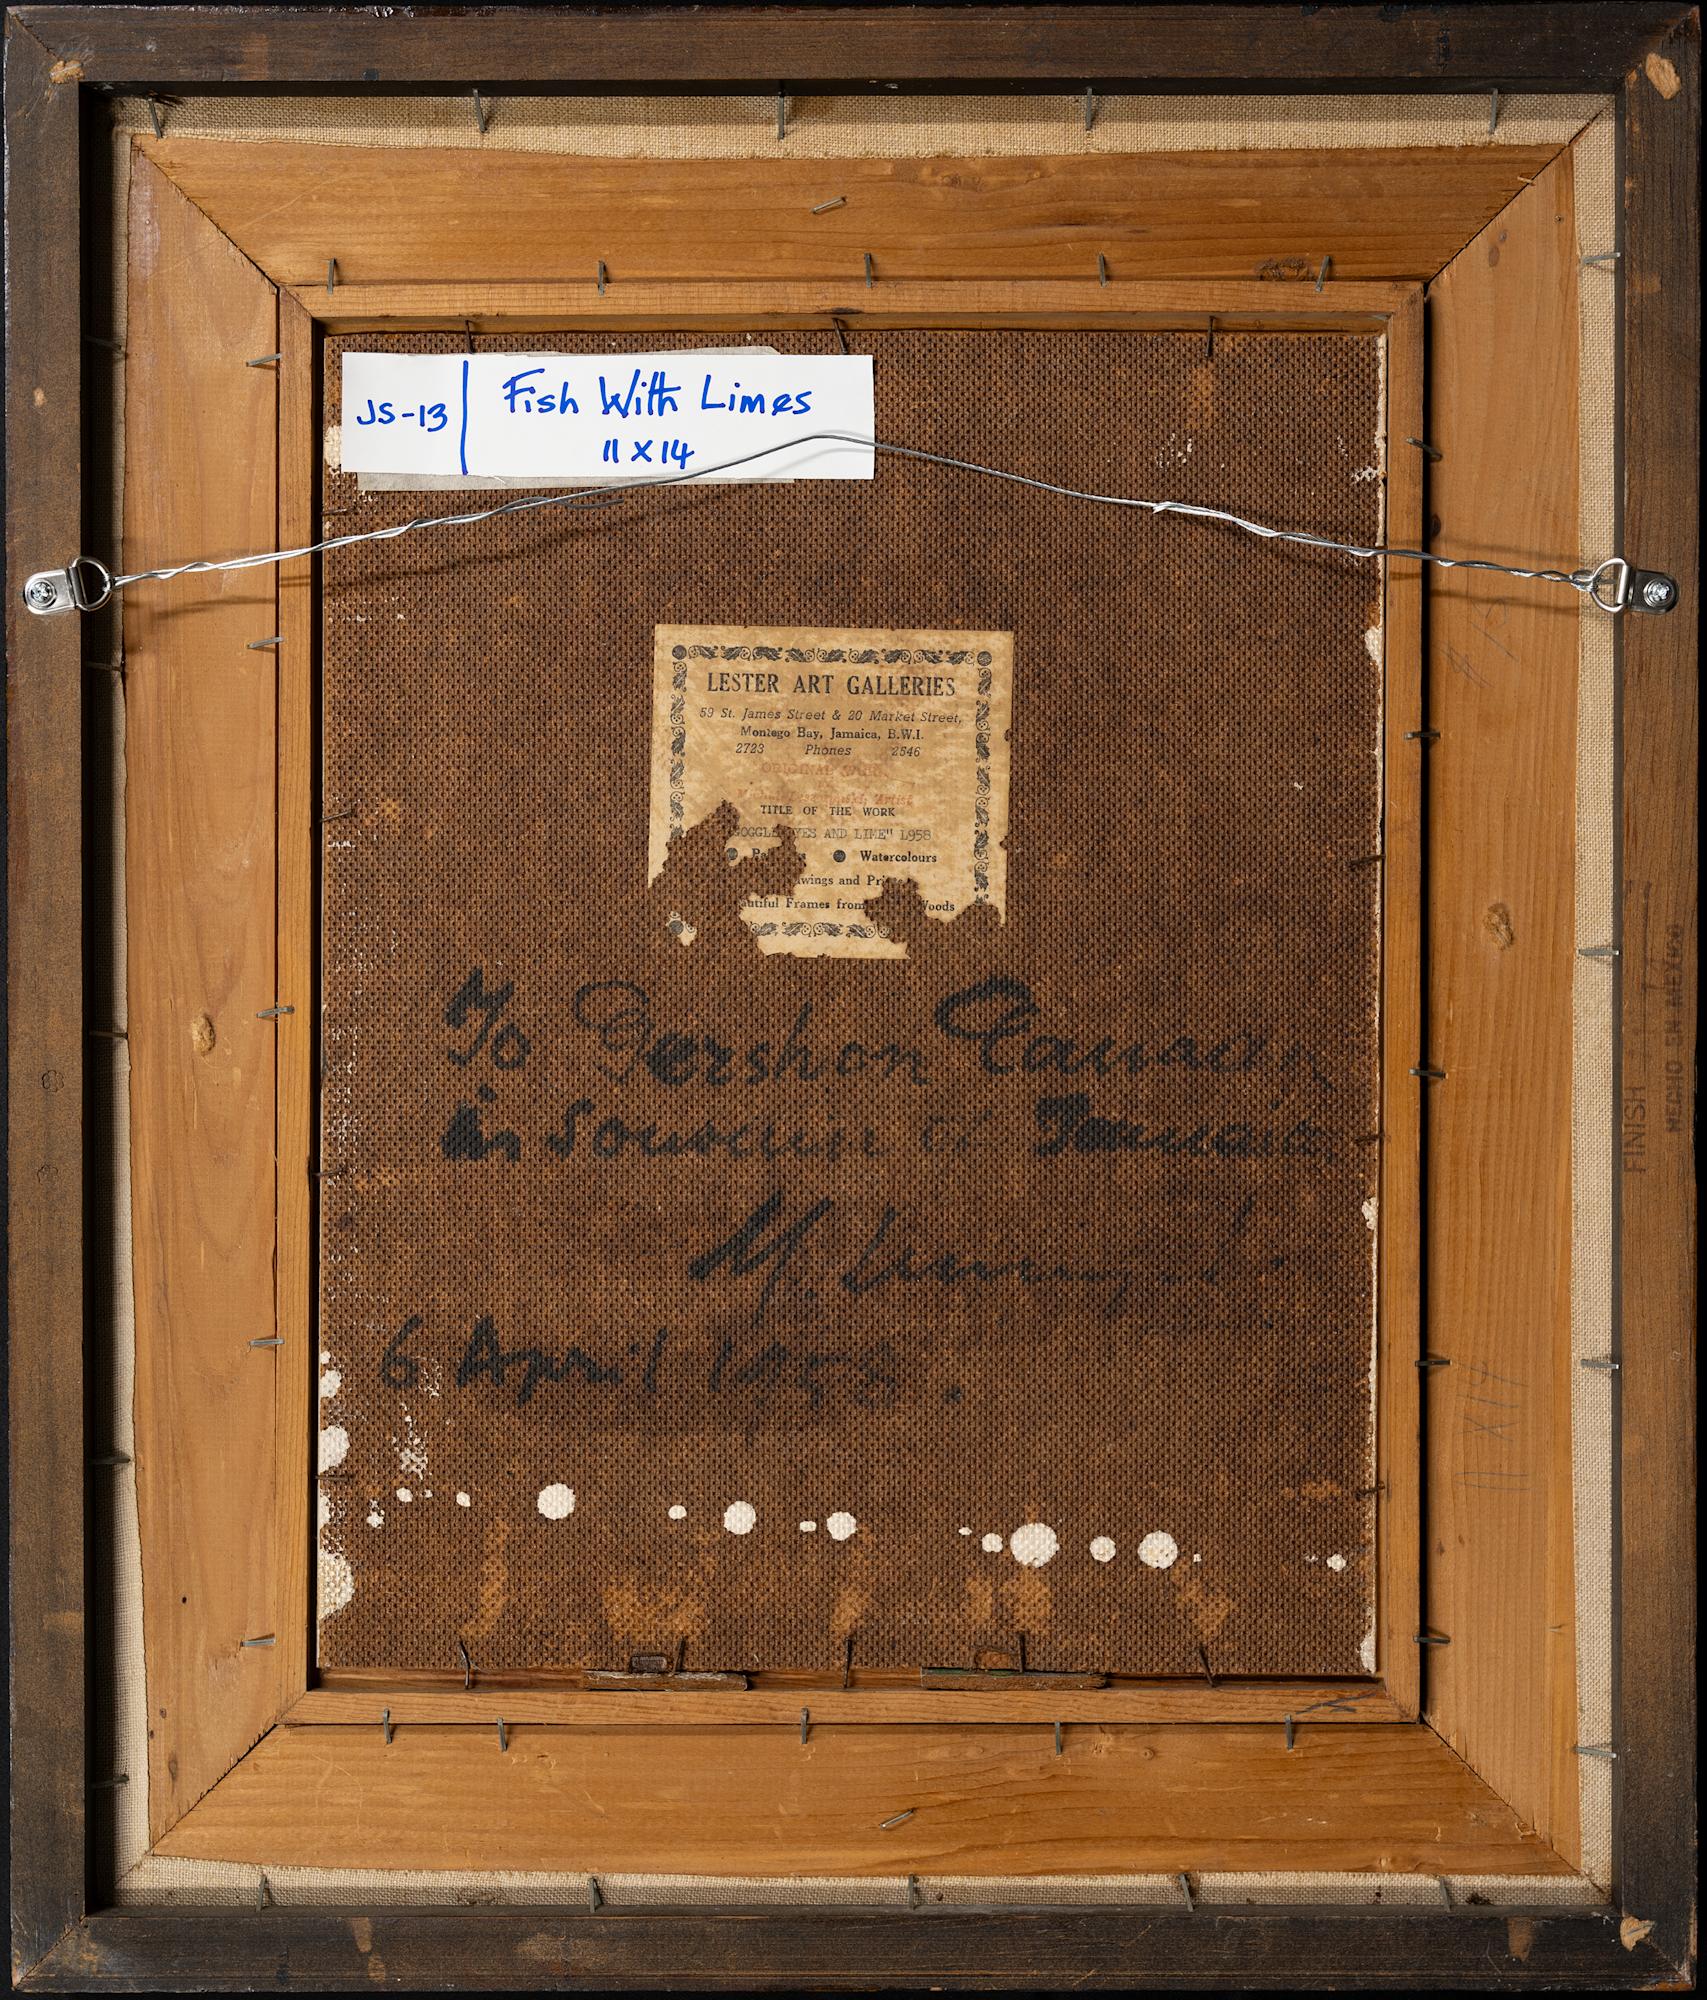 JS-13
Fish With Limes
11 X 14
LESTER ART GALLERIES
59 St. James Street & 20 Market Street,
Montego Bay, Jamaica, B.W.I.
2723 Phones 2546
ORIGINAL
Artist
TITLE OF THE WORK
AND LIME" L958
Watercolours
and
Frames from
To Gershon
in souvenir of Jamaica
M.
6 April 1958.
FINISH
MEXICO
11 X 14